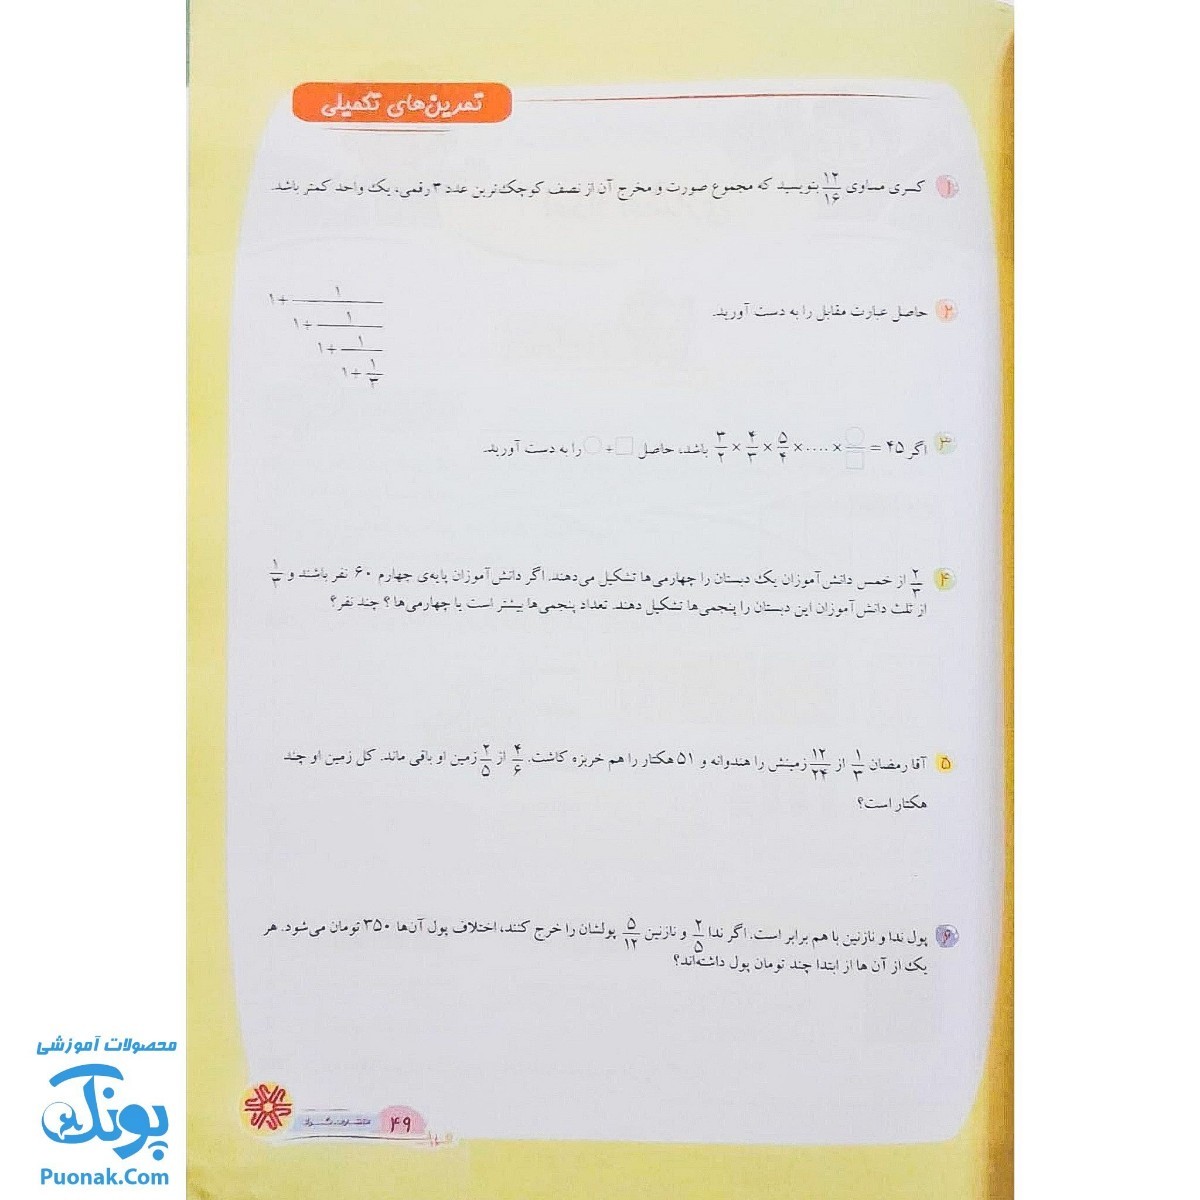 تمرین‌های تکمیلی
۱ کسری مساوی ۱۲/۱۶ بنویسید که مجموع صورت و مخرج آن از نصف کوچک‌ترین عدد ۳ رقمی، یک واحد کمتر باشد.
۲ حاصل عبارت مقابل را به دست آورید.
۱+ ۱
۱+ ۱
۱+ ۱
۱+ ۱/۳
۳ اگر ۴۵ = ○/□ × .... × ۵/۴ × ۴/۳ × ۳/۲ باشد، حاصل □ + ○ را به دست آورید.
۴ ۲/۳ از خمس دانش‌آموزان یک دبستان را چهارمی‌ها تشکیل می‌دهند. اگر دانش‌آموزان پایه‌ی چهارم ۶۰ نفر باشند و ۱/۳
از ثلث دانش‌آموزان این دبستان را پنجمی‌ها تشکیل دهند. تعداد پنجمی‌ها بیشتر است یا چهارمی‌ها؟ چند نفر؟
۵ آقا رمضان ۱/۳ از ۱۲/۲۴ زمینش را هندوانه و ۵۱ هکتار را هم خربزه کاشت. ۴/۶ از ۲/۵ زمین او باقی ماند. کل زمین او چند
هکتار است؟
۶ پول ندا و نازنین با هم برابر است. اگر ندا ۲/۵ و نازنین ۵/۱۲ پولشان را خرج کنند، اختلاف پول آن‌ها ۳۵۰ تومان می‌شود. هر
یک از آن ها از ابتدا چند تومان پول داشته‌اند؟
۴۹
محصولات آموزشی
پونک
Puonak.Com